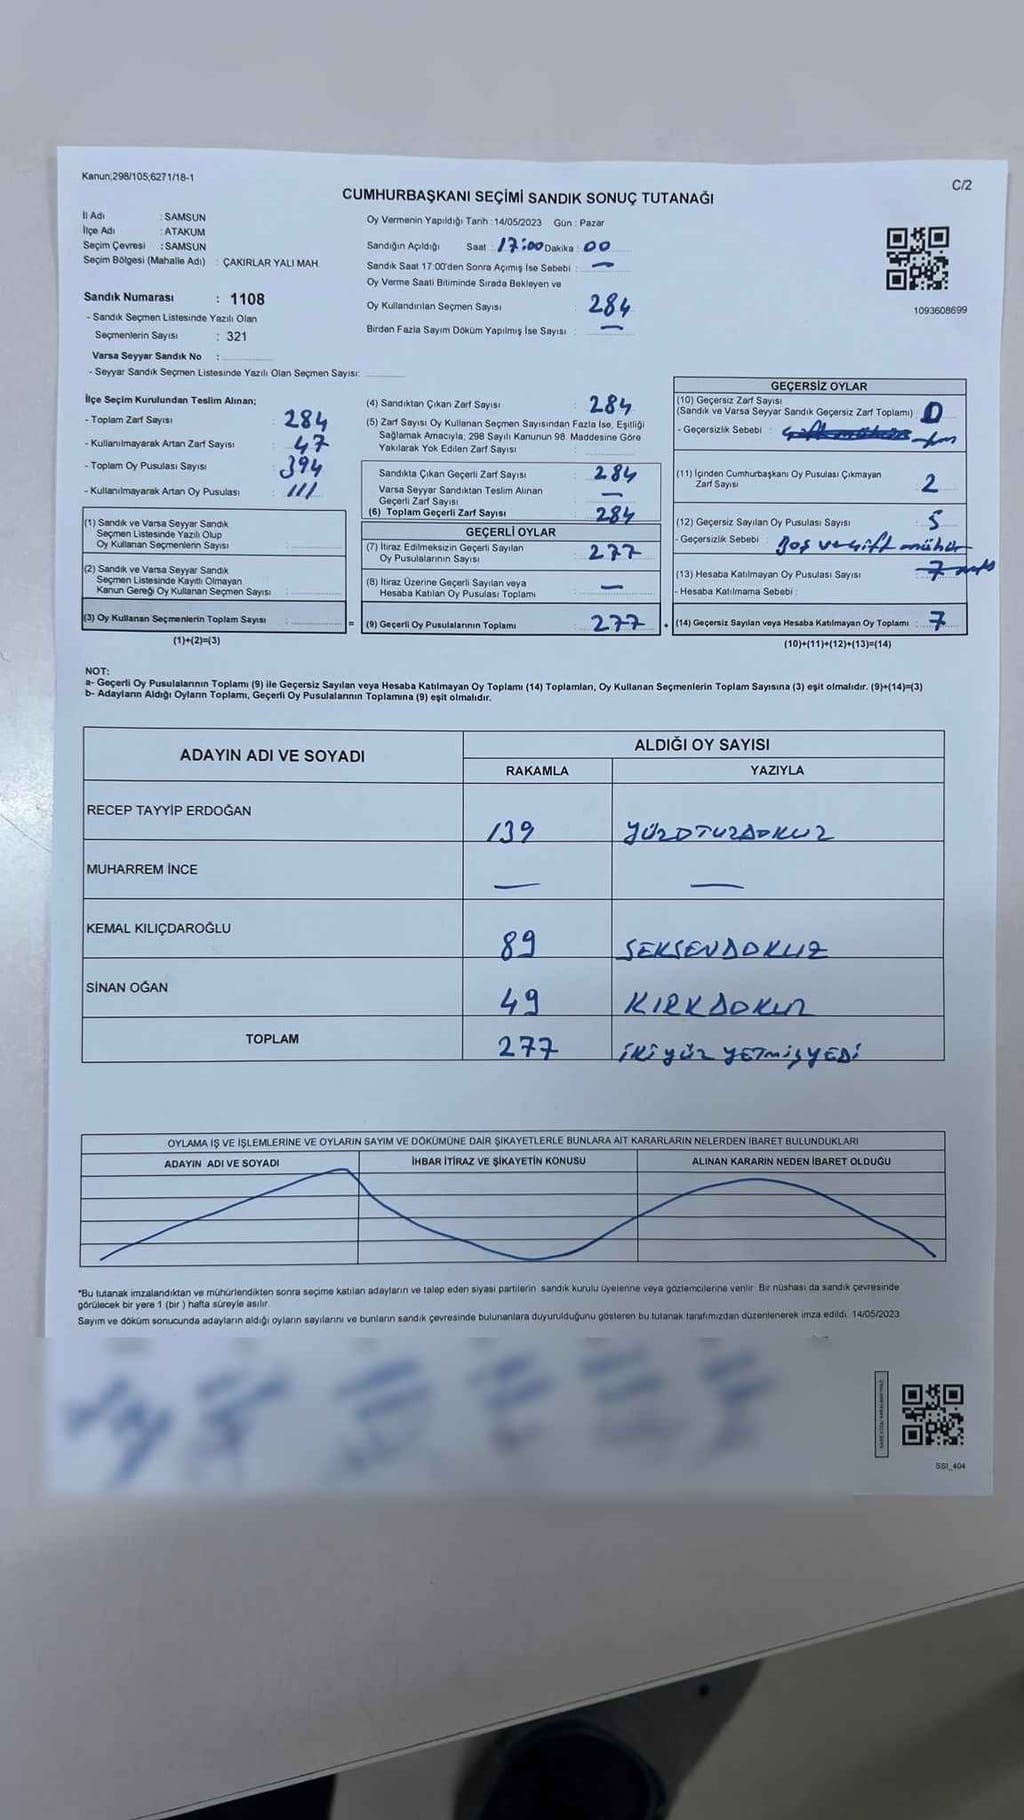 Kanun;298/105;6271/18-1
C/2
CUMHURBAŞKANI SEÇİMİ SANDIK SONUÇ TUTANAĞI
İl Adı : SAMSUN
İlçe Adı : ATAKUM
Seçim Çevresi : SAMSUN
Seçim Bölgesi (Mahalle Adı) : ÇAKIRLAR YALI MAH.
Sandık Numarası : 1108
- Sandık Seçmen Listesinde Yazılı Olan
Seçmenlerin Sayısı : 321
Varsa Seyyar Sandık No :
- Seyyar Sandık Seçmen Listesinde Yazılı Olan Seçmen Sayısı:
Oy Vermenin Yapıldığı Tarih : 14/05/2023 Gün : Pazar
Sandığın Açıldığı Saat : 17:00 Dakika : 00
Sandık Saat 17:00'den Sonra Açımış İse Sebebi : —
Oy Verme Saati Bitiminde Sırada Bekleyen ve
Oy Kullandırılan Seçmen Sayısı : 284
Birden Fazla Sayım Döküm Yapılmış İse Sayısı : —
1093608699
İlçe Seçim Kurulundan Teslim Alınan;
- Toplam Zarf Sayısı : 284
- Kullanılmayarak Artan Zarf Sayısı : 47
- Toplam Oy Pusulası Sayısı : 394
- Kullanılmayarak Artan Oy Pusulası : 111
(1) Sandık ve Varsa Seyyar Sandık
Seçmen Listesinde Yazılı Olup
Oy Kullanan Seçmenlerin Sayısı :
(2) Sandık ve Varsa Seyyar Sandık
Seçmen Listesinde Kayıtlı Olmayan
Kanun Gereği Oy Kullanan Seçmen Sayısı :
(3) Oy Kullanan Seçmenlerin Toplam Sayısı : =
(1)+(2)=(3)
(4) Sandıktan Çıkan Zarf Sayısı : 284
(5) Zarf Sayısı Oy Kullanan Seçmen Sayısından Fazla İse, Eşitliği
Sağlamak Amacıyla; 298 Sayılı Kanunun 98. Maddesine Göre
Yakılarak Yok Edilen Zarf Sayısı :
Sandıkta Çıkan Geçerli Zarf Sayısı : 284
Varsa Seyyar Sandıktan Teslim Alınan
Geçerli Zarf Sayısı : —
(6) Toplam Geçerli Zarf Sayısı : 284
GEÇERLİ OYLAR
(7) İtiraz Edilmeksizin Geçerli Sayılan
Oy Pusulalarının Sayısı : 277
(8) İtiraz Üzerine Geçerli Sayılan veya
Hesaba Katılan Oy Pusulası Toplamı : —
(9) Geçerli Oy Pusulalarının Toplamı : 277 +
GEÇERSİZ OYLAR
(10) Geçersiz Zarf Sayısı
(Sandık ve Varsa Seyyar Sandık Geçersiz Zarf Toplamı) : 0
- Geçersizlik Sebebi :
(11) İçinden Cumhurbaşkanı Oy Pusulası Çıkmayan
Zarf Sayısı : 2
(12) Geçersiz Sayılan Oy Pusulası Sayısı : 5
- Geçersizlik Sebebi : Boş ve çift mühür
(13) Hesaba Katılmayan Oy Pusulası Sayısı : 7
- Hesaba Katılmama Sebebi :
(14) Geçersiz Sayılan veya Hesaba Katılmayan Oy Toplamı : 7
(10)+(11)+(12)+(13)=(14)
NOT:
a- Geçerli Oy Pusulalarının Toplamı (9) ile Geçersiz Sayılan veya Hesaba Katılmayan Oy Toplamı (14) Toplamları, Oy Kullanan Seçmenlerin Toplam Sayısına (3) eşit olmalıdır. (9)+(14)=(3)
b- Adayların Aldığı Oyların Toplamı, Geçerli Oy Pusulalarının Toplamına (9) eşit olmalıdır.
ADAYIN ADI VE SOYADI ALDIĞI OY SAYISI
RAKAMLA YAZIYLA
RECEP TAYYİP ERDOĞAN 139 YÜZOTUZDOKUZ
MUHARREM İNCE — —
KEMAL KILIÇDAROĞLU 89 SEKSENDOKUZ
SİNAN OĞAN 49 KIRKDOKUZ
TOPLAM 277 İKİYÜZ YETMİŞYEDİ
OYLAMA İŞ VE İŞLEMLERİNE VE OYLARIN SAYIM VE DÖKÜMÜNE DAİR ŞİKAYETLERLE BUNLARA AİT KARARLARIN NELERDEN İBARET BULUNDUKLARI
ADAYIN ADI VE SOYADI İHBAR İTİRAZ VE ŞİKAYETİN KONUSU ALINAN KARARIN NEDEN İBARET OLDUĞU
*Bu tutanak imzalandıktan ve mühürlendikten sonra seçime katılan adayların ve talep eden siyasi partilerin sandık kurulu üyelerine veya gözlemcilerine verilir. Bir nüshası da sandık çevresinde
görülecek bir yere 1 (bir ) hafta süreyle asılır.
Sayım ve döküm sonucunda adayların aldığı oyların sayılarını ve bunların sandık çevresinde bulunanlara duyurulduğunu gösteren bu tutanak tarafımızdan düzenlenerek imza edildi. 14/05/2023
SSI_404